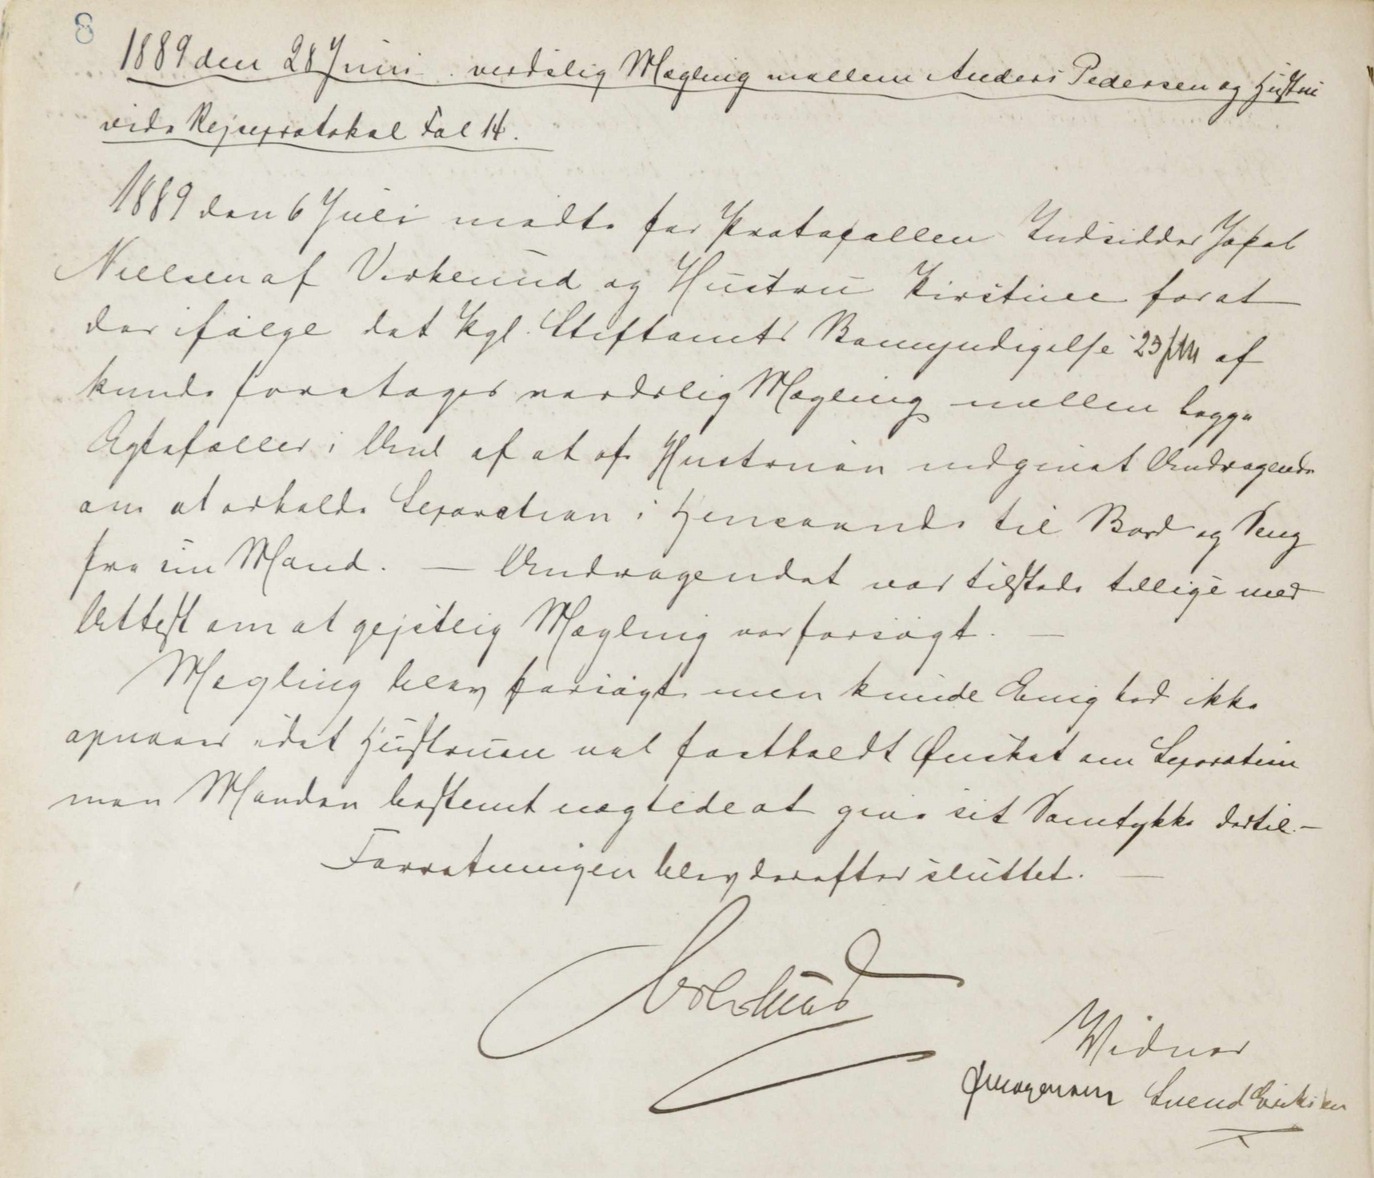 8
1889 den 28 Juni verdslig Mægling mellem Anders Pedersen og Hustru
vide Rejseprotokol Fol 14.
1889 den 6 Juli mødte for Protokollen Indsidder Jakob
Nielsen af Virkelund og Hustru Kirstine forat
der ifølge det kgl. Stiftamts Bemyndigelse 23/ af
kunde foretages verdslig Mægling mellem begge
Ægtefæller i Anl af at af Hustruen indgivet Andragende
om at erholde Separation i Henseende til Bord og Seng
fra sin Mand. — Andragendet var tilstede tillige med
Attest om at gejstlig Mægling var forsøgt. —
Mægling blev forsøgt men kunde Enighed ikke
opnaaes idet Hustruen vel fastholdt Ønsket om Separation
men Manden bestemt nægtede at give sit Samtykke dertil. —
Forretningen blev derefter sluttet. —
Vidner
Svend Eriksen